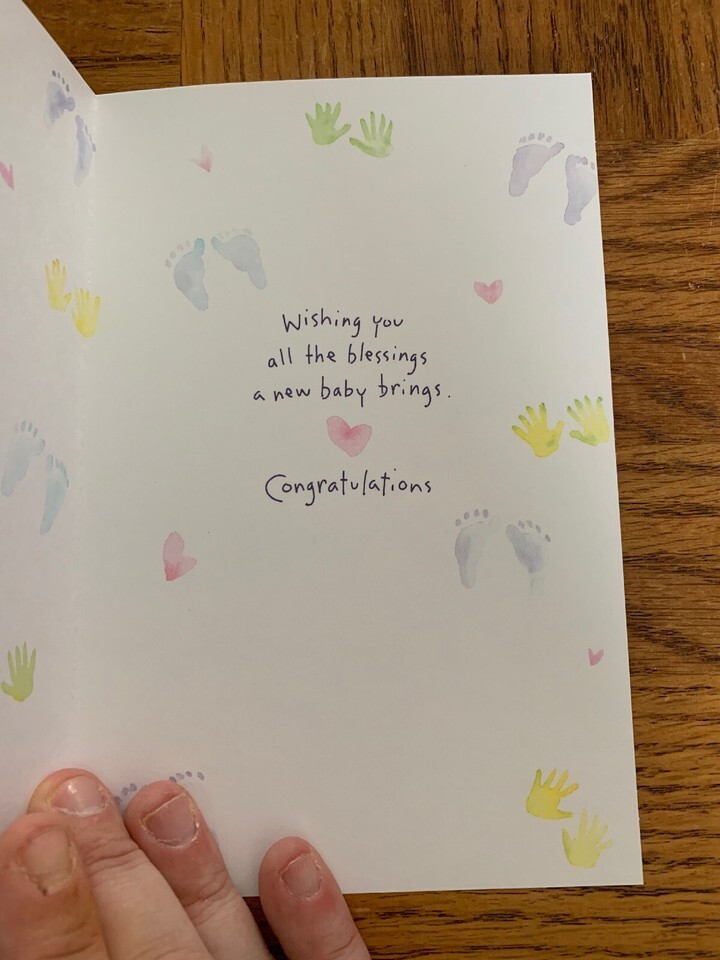 Wishing you
all the blessings
a new baby brings.
Congratulations